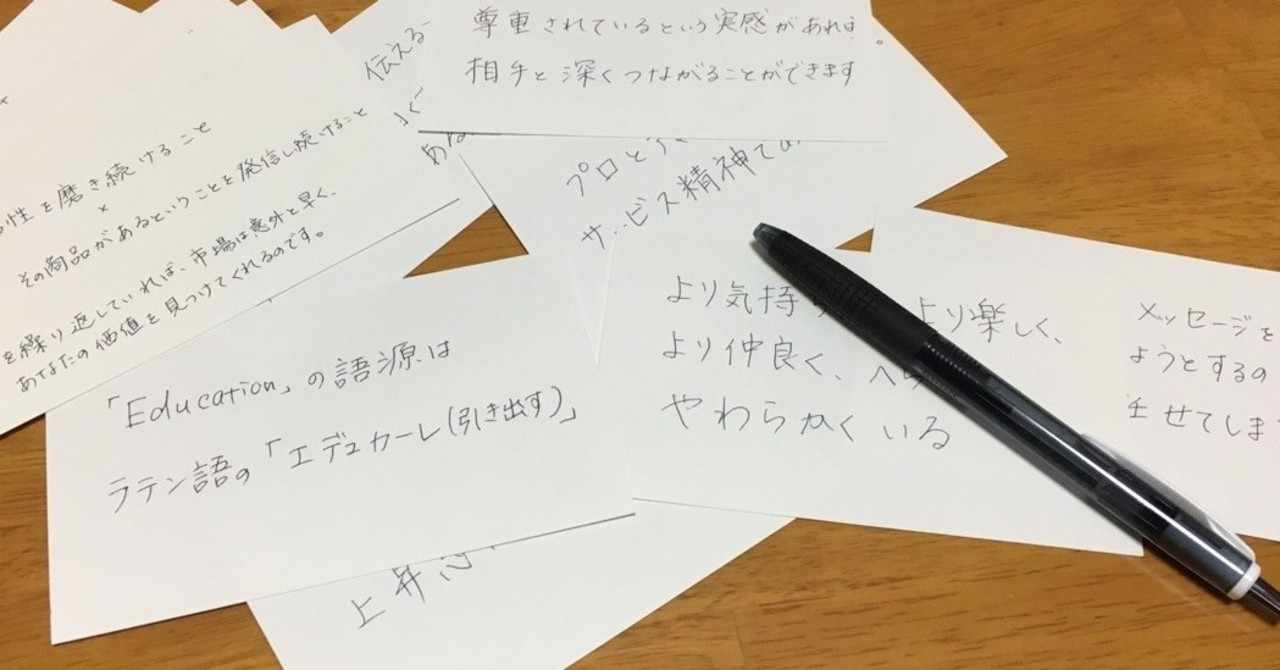 尊重されているという実感があれば
相手と深くつながることができます。
伝える
性を磨き続けること
×
その商品があるということを発信し続けること
を繰り返していれば、市場は意外と早く、
あなたの価値を見つけてくれるのです。
プロと
サービス精神
「Education」の語源は
ラテン語の「エデュカーレ(引き出す)」
より気持 より楽しく、
より仲良く、
やわらかくいる
メッセージを
ようとするの
任せてしま
上昇